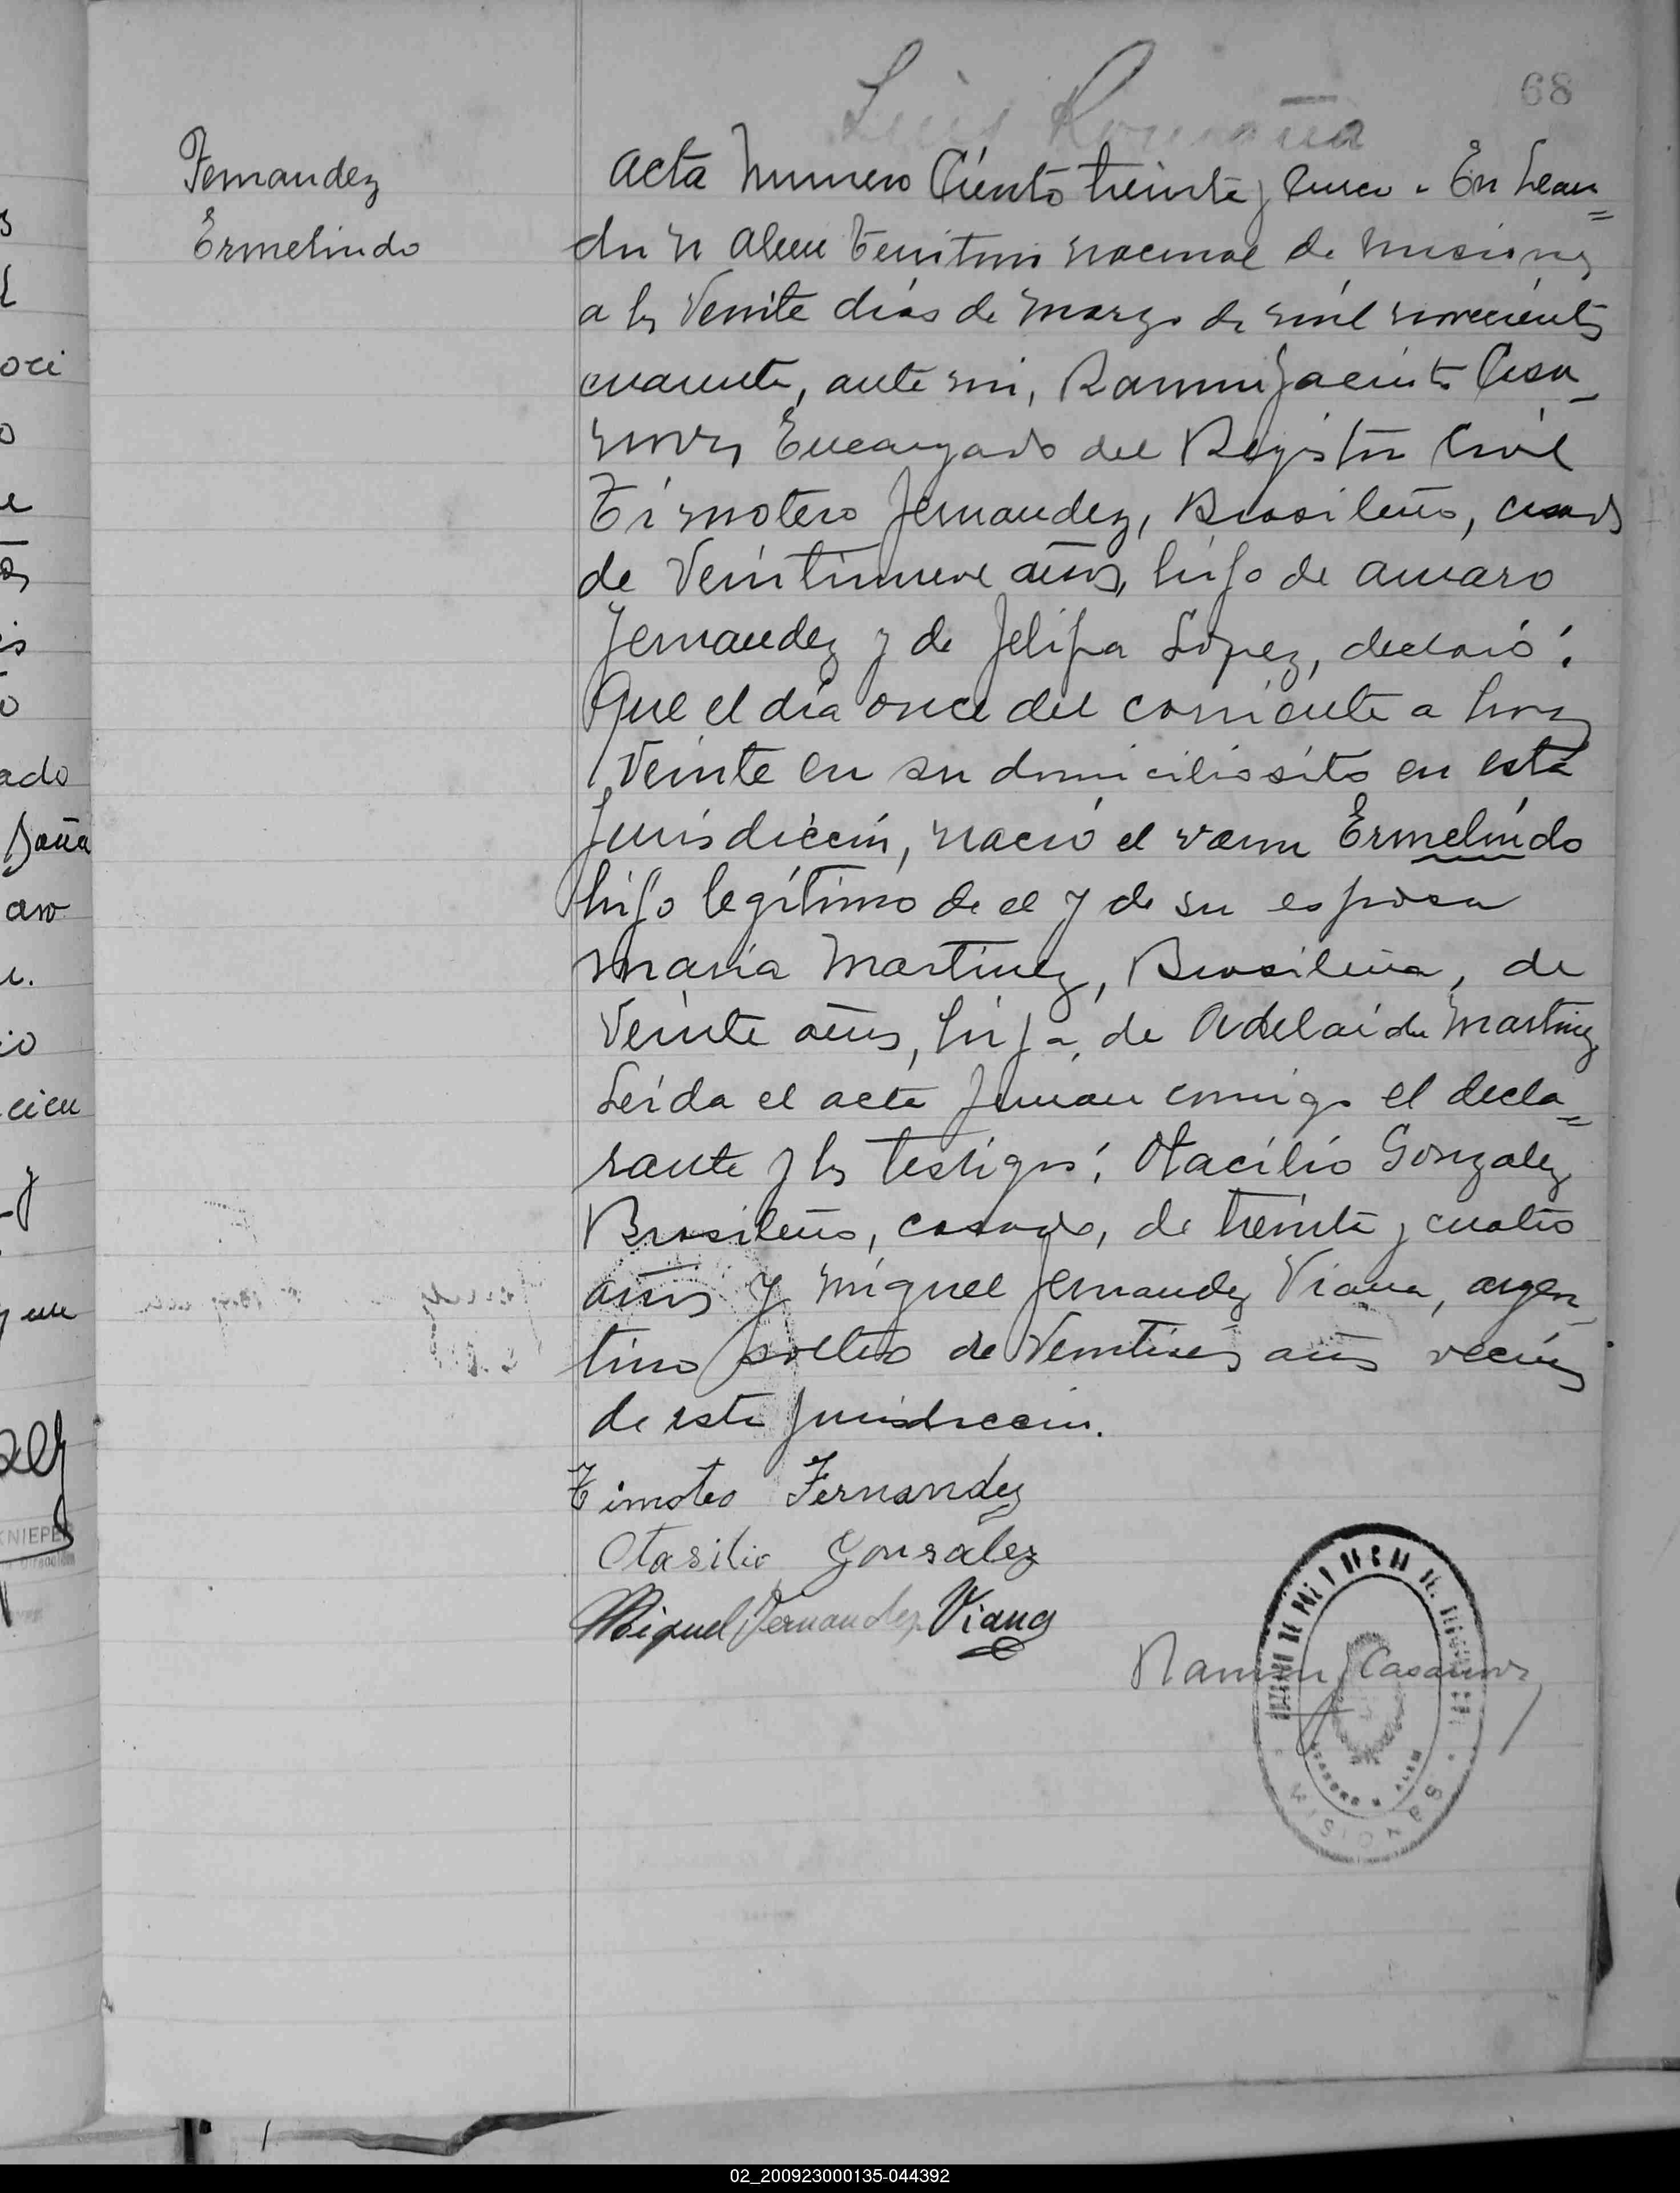 68
Luis Romaña
Fernandez
Ermelindo
Acta Numero Ciento treinta y Cinco. En Lean=
dro N Alem Territorio nacional de Misiones
a los Veinte días de Marzo de mil novecientos
cuarenta, ante mi, Ramon Jacinto Casa-
noves Encargado del Registro Civil
Timotero Fernandez, Brasileño, casado
de Veintinueve años, hijo de Amaro
Fernandez y de Felipa Lopez, declaró:
Que el día once del corriente a horas
Veinte en su domicilio sito en esta
Jurisdicción, nació el varon Ermelindo
hijo legítimo de el y de su esposa
María Martinez, Brasileña, de
Veinte años, hija de Adelaida Martinez
Leída el acta firman conmigo el decla=
rante y los testigos: Otacilio Gonzalez
Brasileño, casado, de treinta y cuatro
años y Miguel Fernandez Viana, argen-
tino soltero de Veintiseis años vecinos
de esta Jurisdiccion.
Timoteo Fernandez
Otasilio Gonsalez
Miguel Fernandez Viana
Ramon J Casanoves
MISIONES
02_200923000135-044392